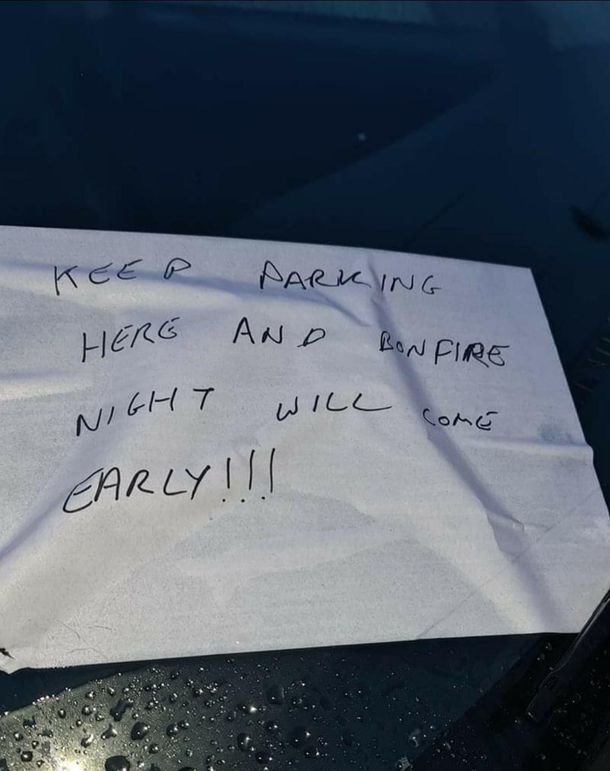 KEEP PARKING
HERE AND BONFIRE
NIGHT WILL COME
EARLY!!!